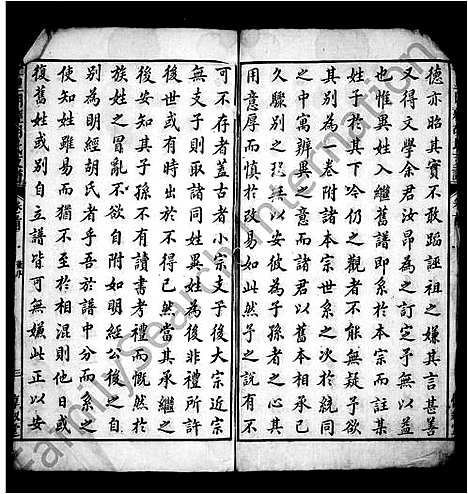 德亦昭其實不敢蹈誣祖之嫌其言甚善
又得文學余君汝昂為之訂定予無以益
也惟異姓入繼舊譜即系於本宗而註某
姓於其下今仍之觀者不能無疑予欲
其別為一卷附諸本宗世系之次於統同
之中寓其別異之意而諸君以舊本相承
久驟別之未必安彼為子孫者之心其
用意厚而慎於改易如此然予之說有不
可不存者蓋古者小宗支子後大宗近宗
無支子則取諸同姓異姓為後非禮所許
後世有時出於不得已然苟其承繼之
後安知其子孫不有讀書考禮而慨然於
族姓之冒亂不欲自附如明經公後之自
別為明經胡氏者乎吾於譜中分而系之
使知姓雖同而不至於相混則他日或
復舊姓或別自立譜皆可無嫌此正以安
三
FamilySearch International